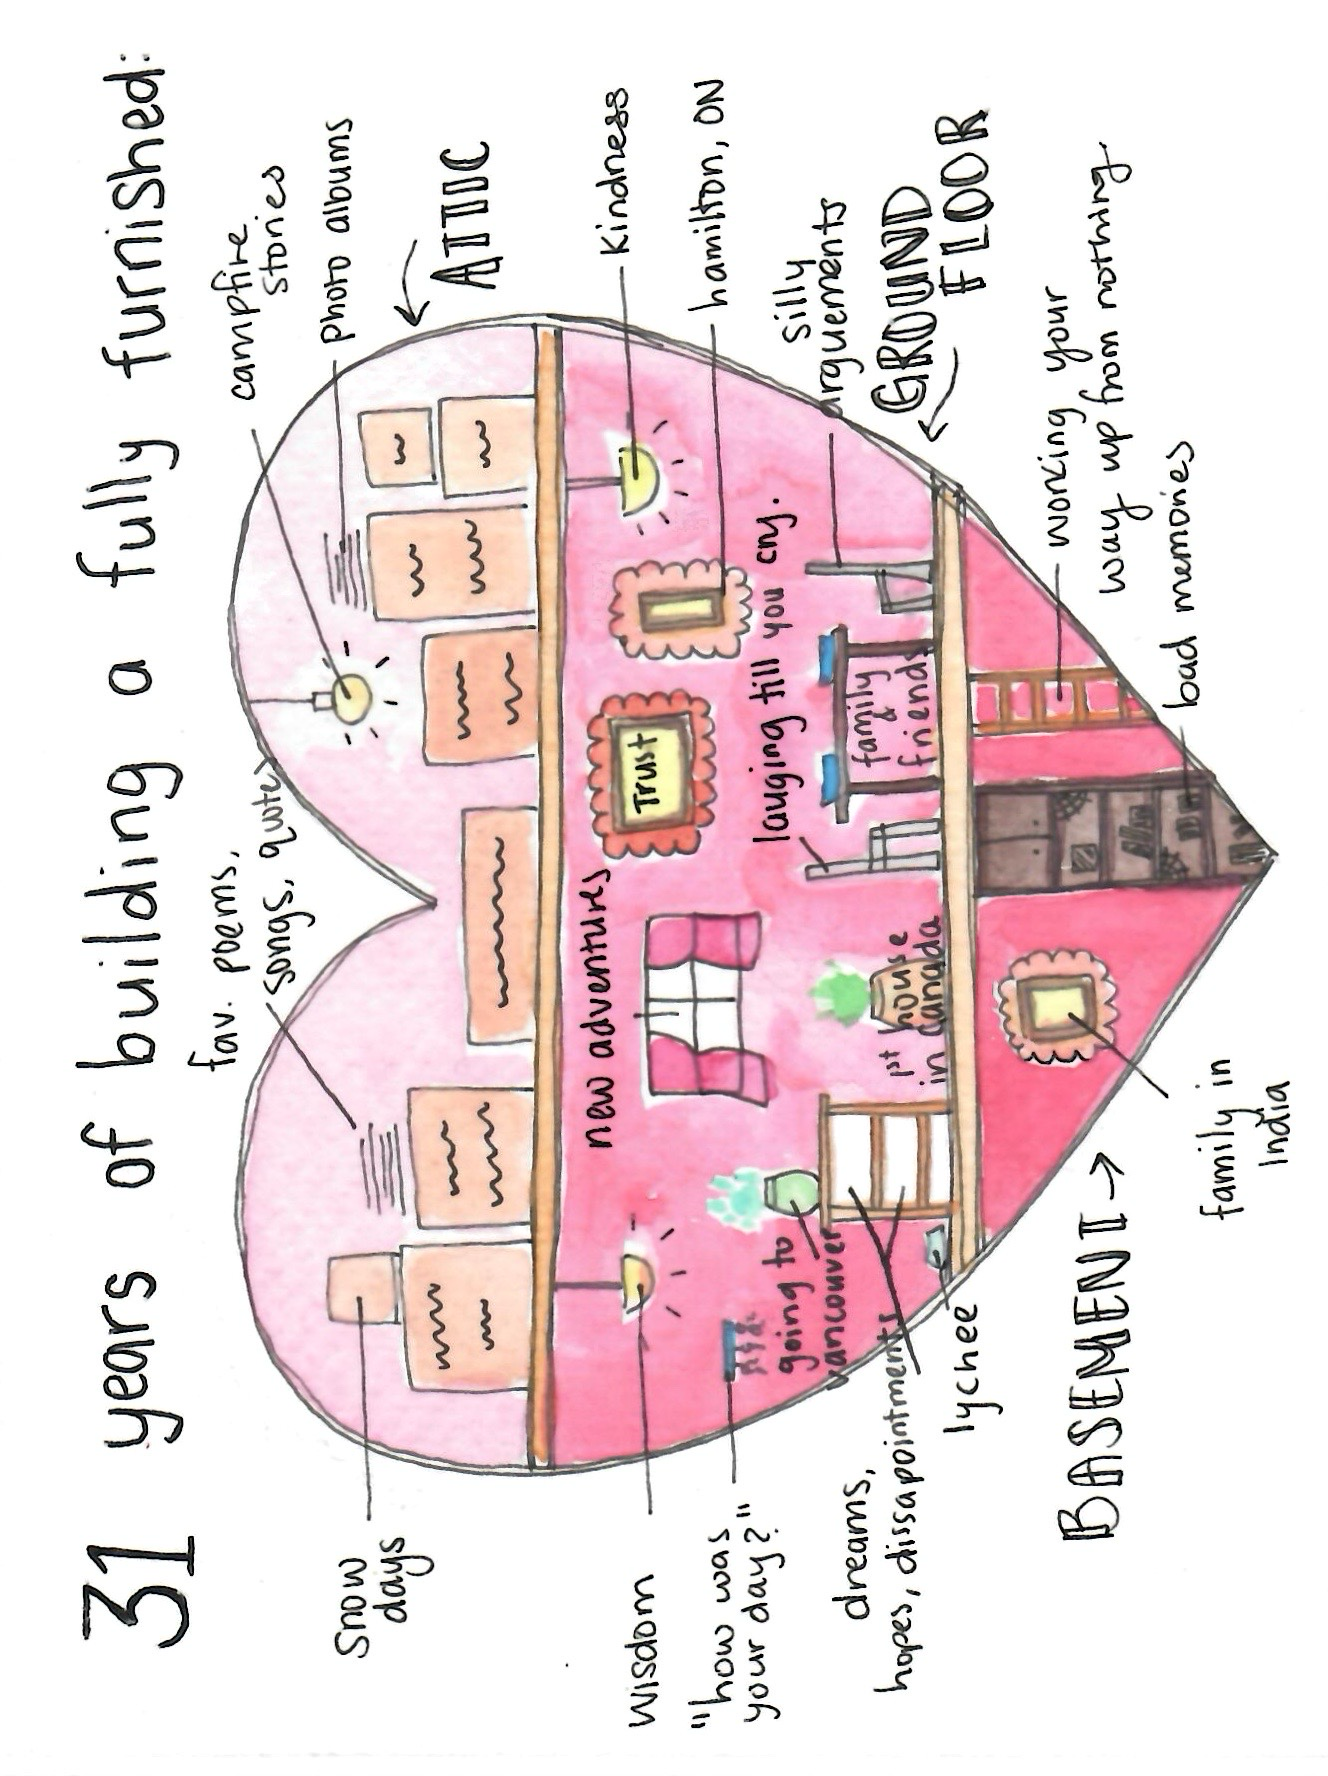 31 years of building a fully furnished:
fav. poems,
songs, quotes
campfire
stories
photo albums
ATTIC
snow
days
new adventures
Trust
kindness
hamilton, ON
wisdom
"how was
your day?"
going to
vancouver
lauging till you cry.
silly
arguements
GROUND
FLOOR
dreams,
hopes, dissapointments
1st house
in Canada
family
&
friends
lychee
BASEMENT
family in
India
working your
way up from nothing.
bad memories